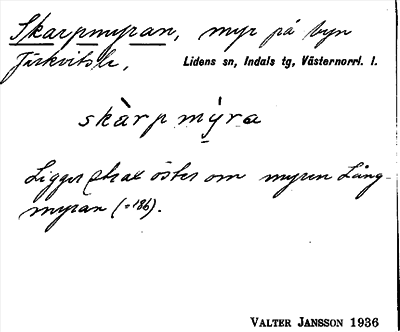 Skarpmyran, myr på byn
Järkvitsle, Lidens sn, Indals tg, Västernorrl. l.
skàrpmýra
Ligger strax öster om myren Lång-
myran (=186).
VALTER JANSSON 1936